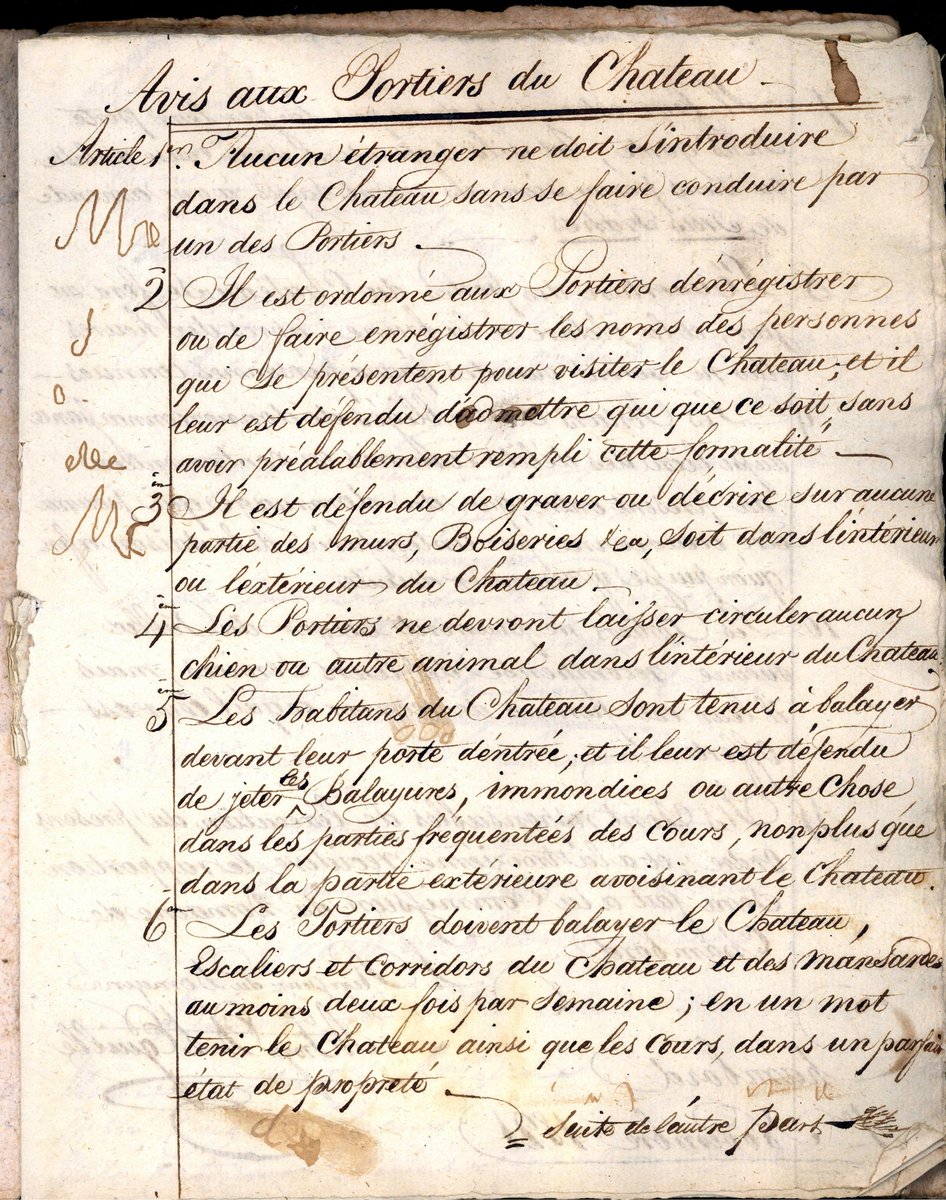 Avis aux Portiers du Chateau
Article 1er. Aucun étranger ne doit s'introduire
dans le Chateau sans se faire conduire par
un des Portiers.
2 Il est ordonné aux Portiers d'énrégistrer
ou de faire enrégistrer les noms des personnes
qui se présentent pour visiter le Chateau; et il
leur est défendu d'admettre qui que ce soit sans
avoir préalablement rempli cette formalité
3 Il est défendu de graver ou d'écrire sur aucune
partie des murs, Boiseries &a, soit dans l'intérieur
ou l'éxtérieur du Chateau.
4 Les Portiers ne devront laisser circuler aucun
chien ou autre animal dans l'intérieur du Chateau
5 Les habitans du Chateau sont tenus à balayer
devant leur porte d'éntrée, et il leur est défendu
de jeter les Balayures, immondices ou autre chose
dans les parties fréquenteés des Cours, non plus que
dans la partie extérieure avoisinant le Chateau.
6 Les Portiers doivent balayer le Chateau,
Escaliers et Corridors du Chateau et des Mansardes
au moins deux fois par semaine; en un mot
tenir le Chateau ainsi que les Cours, dans un parfait
état de propreté.
Suite de l'autre Part